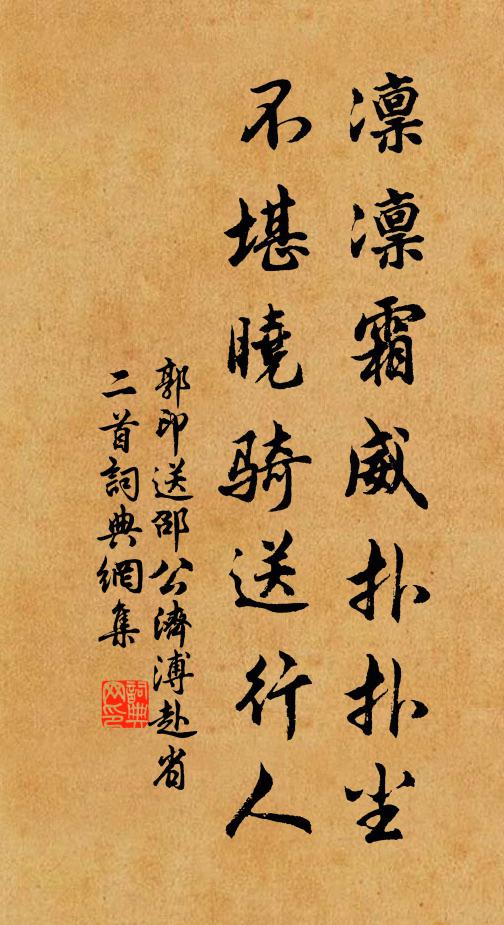 凛凛霜威扑扑尘
不堪曉騎送行人
郭印送邵公濟溥赴省
二首詞典網集
詞典
网印